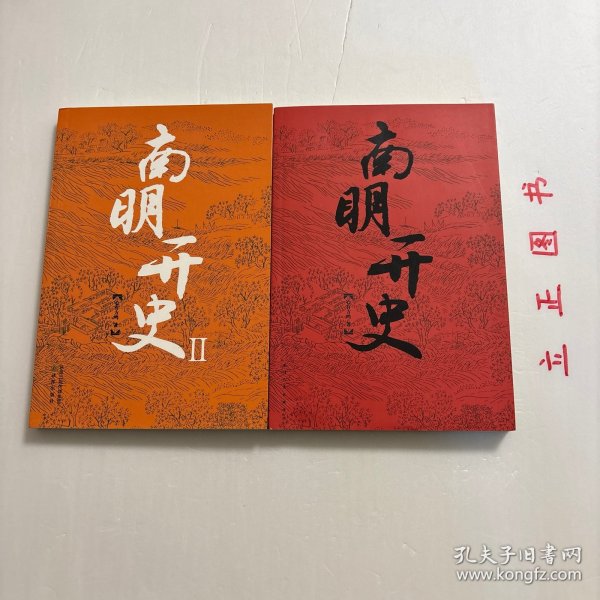 南明开史
II
南明开史
立正图书
孔夫子旧书网
www.kongfz.com